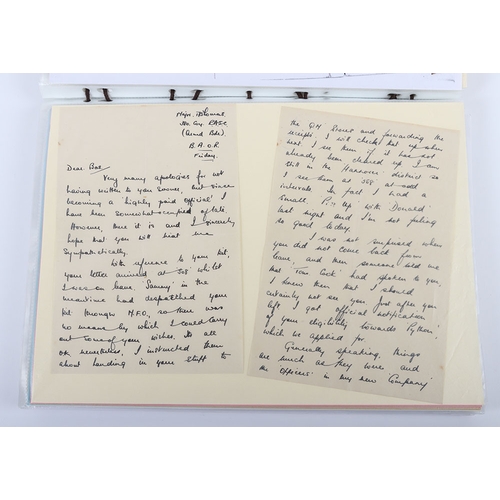 Major. Thomas
Coy. RASC
(Armd Bde).
B.A.O.R.
Friday.
Dear Bae,
Very many apologies for not
having written to you sooner, but since
becoming a highly paid official I
have been somewhat occupied of late.
However, here it is and I sincerely
hope that you will treat me
sympathetically.
With reference to your kit,
your letter arrived at 508 whilst
I was on leave 'Sammy' in the
meantime had despatched your
kit through M.F.O., so there was
no means by which I could carry
out some of your wishes. It's all
OK nevertheless, I instructed them
about handing in your stuff to
the QM Stores and forwarding the
receipts. I will check that up when
next I see them if it has not
already been cleared up. I am
still in the Hannover district so
I see them at 508 at odd
intervals. In fact I had a
small P... Up with 'Donald'
last night and I'm not feeling
so good today.
I was not surprised when
you did not come back from
leave, and when someone told me
that had spoken to you,
I knew then that I should
certainly not see you. Just after you
left I got official notification
of your eligibility towards 'Python'
which we applied for.
Generally speaking, things
are much as they were and
the officers in my new Company